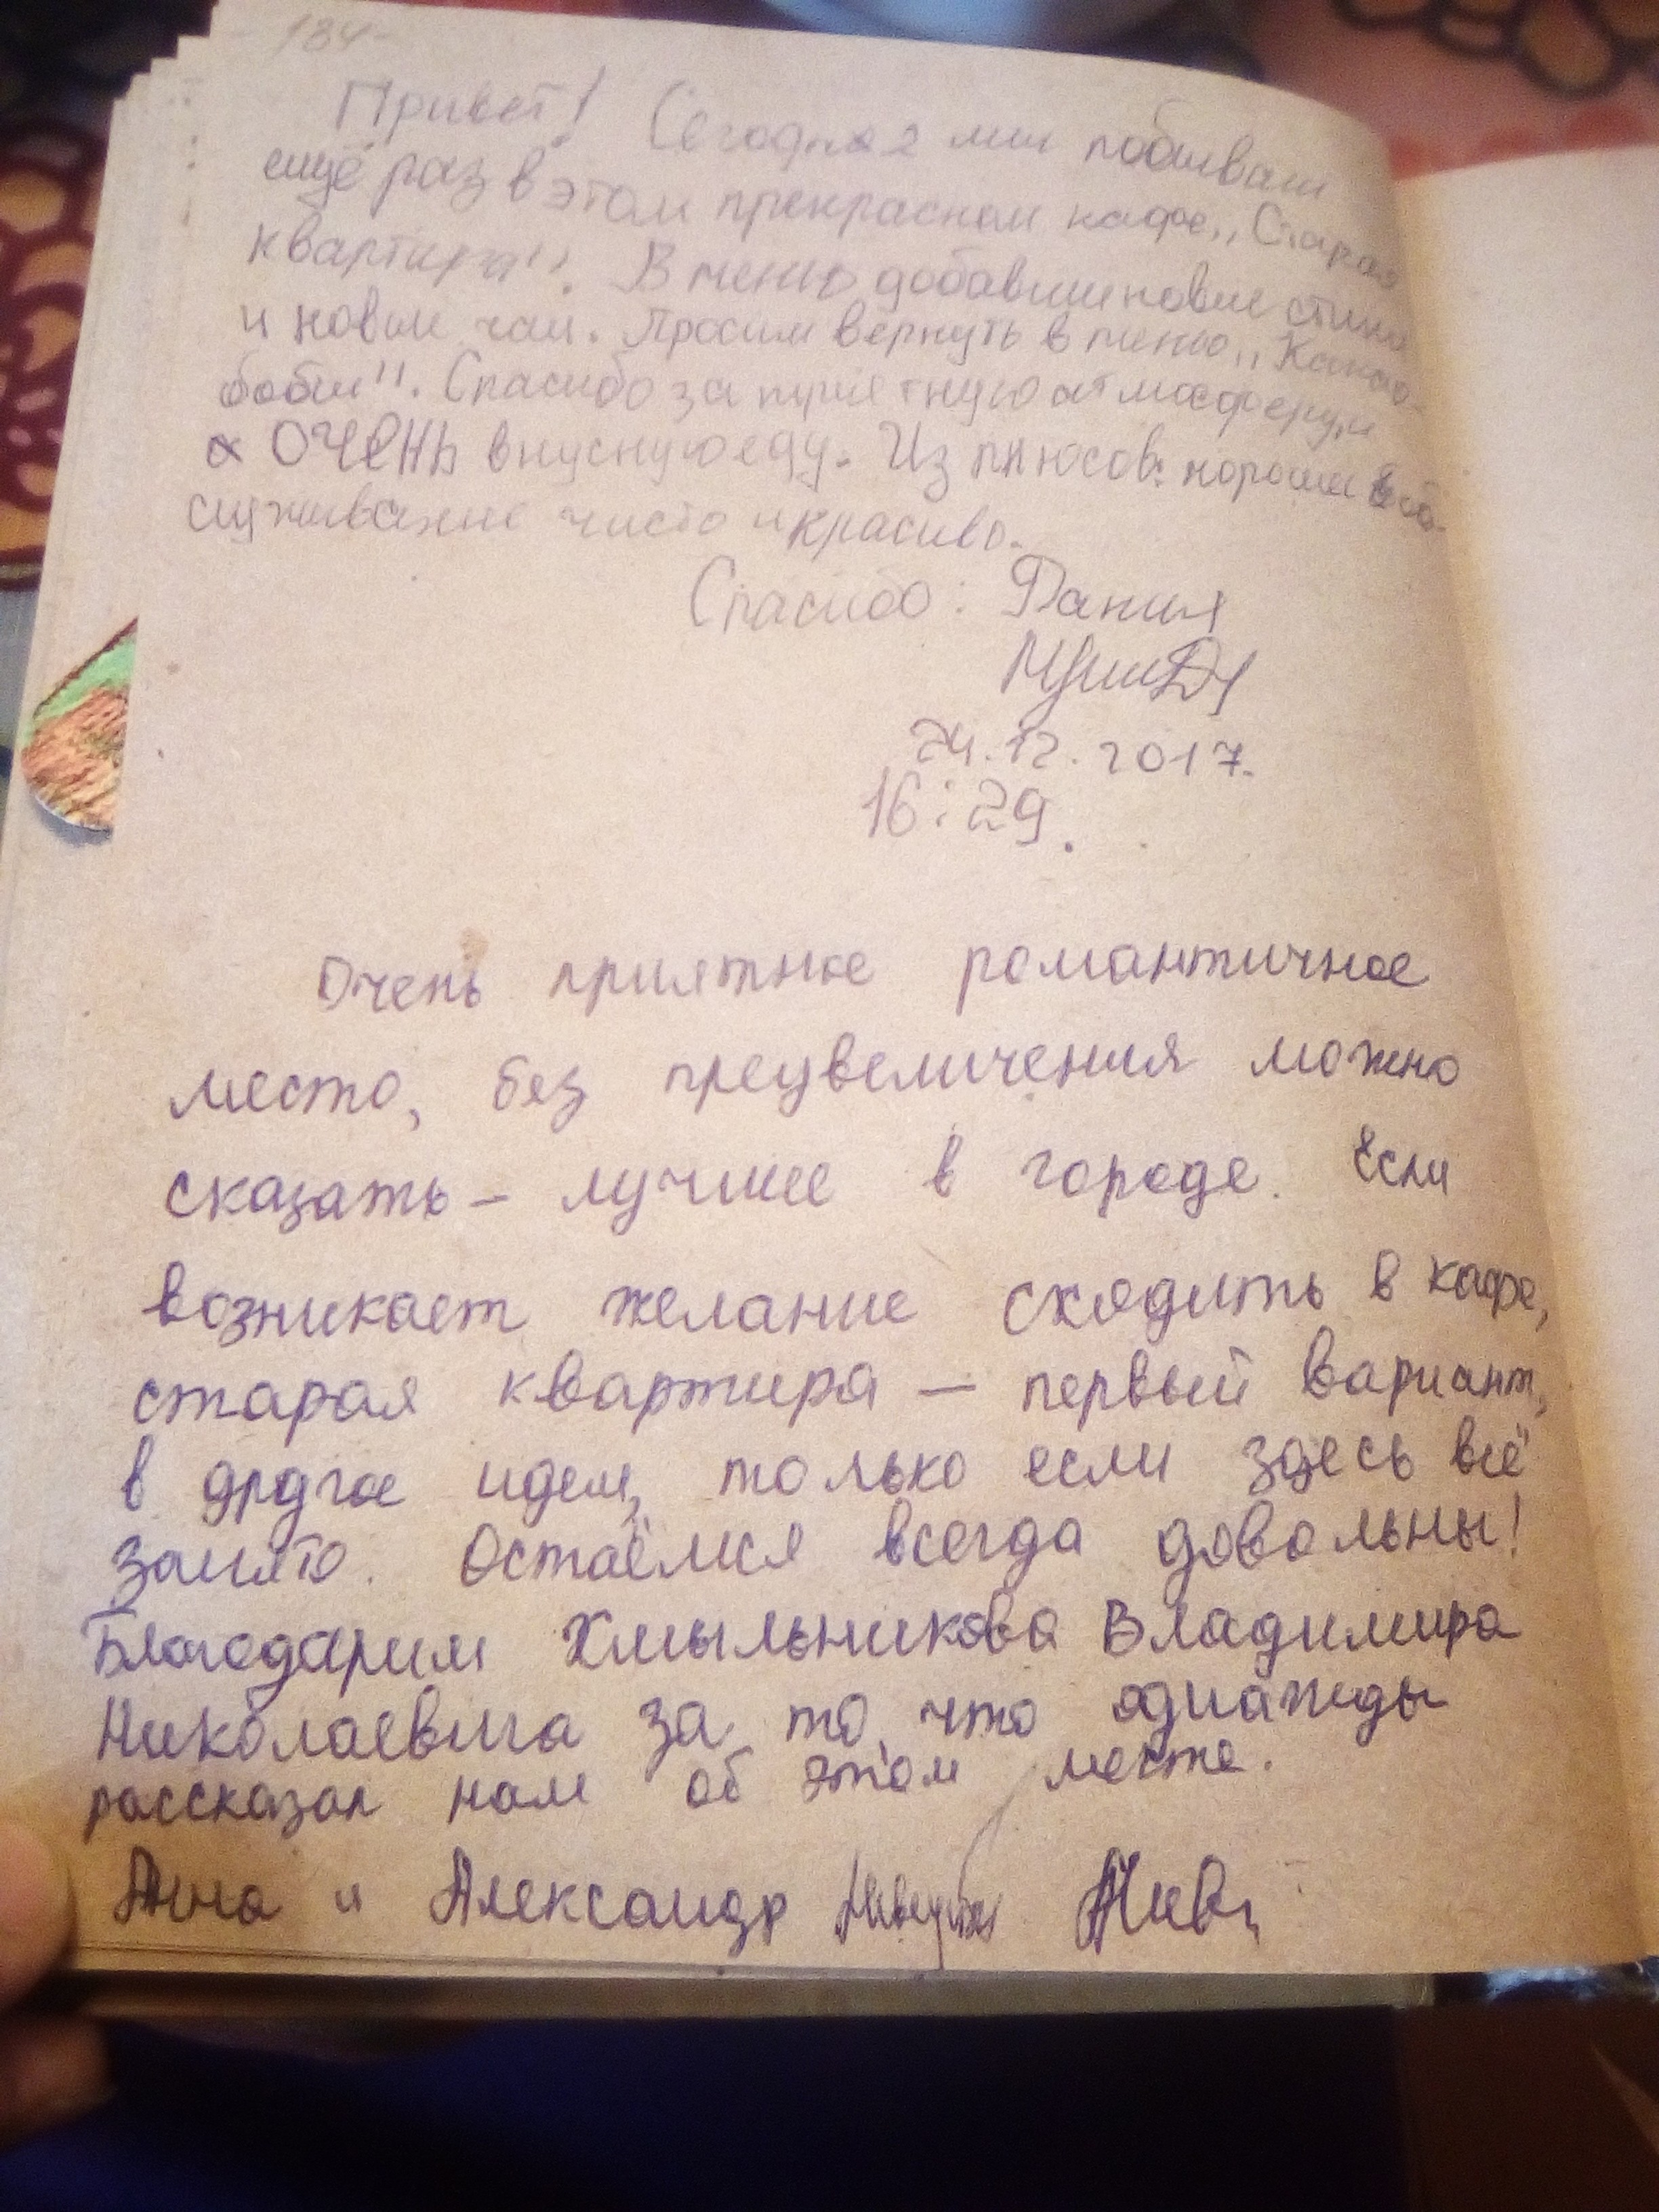 -184-
Привет! Сегодня мы побывали
ещё раз в этом прекрасном кафе „Старая
квартира". В меню добавили новые
и новые чаи. Просим вернуть в меню „Какао-
бобы". Спасибо за приятную атмосферу и
ОЧЕНЬ вкусную еду. Из плюсов: хорошее об-
служивание чисто и красиво.
Спасибо: Данил
24.12.2017.
16:29.
Очень приятное романтичное
место, без преувеличения можно
сказать – лучшее в городе. Если
возникает желание сходить в кафе,
старая квартира – первый вариант,
в другое идем, только если здесь всё
занято. Остаёмся всегда довольны!
Благодарим Хмыльникова Владимира
Николаевича за то, что однажды
рассказал нам об этом месте.
Анна и Александр